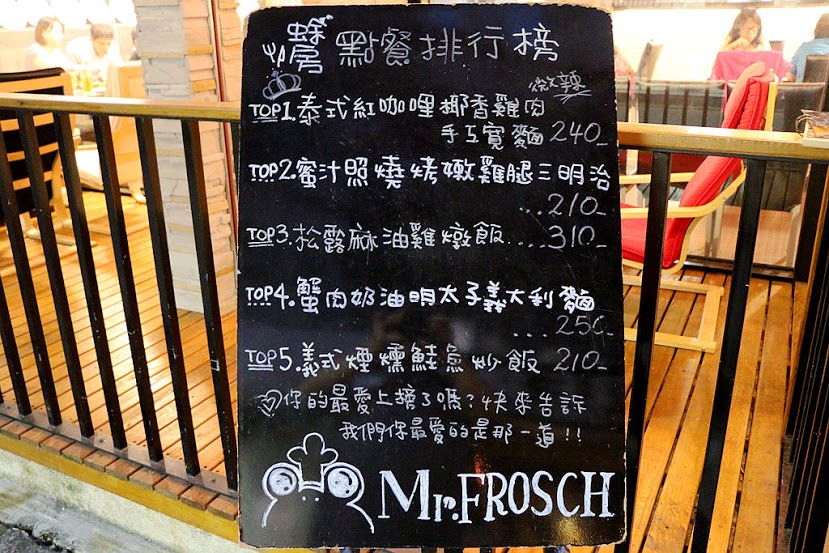 點餐排行榜
微辣
TOP1.泰式紅咖哩椰香雞肉
手工寬麵240
TOP2.蜜汁照燒烤嫩雞腿三明治
...210
TOP3.松露麻油雞燉飯....310
TOP4.蟹肉奶油明太子義大利麵
...250
TOP5.義式煙燻鮭魚炒飯 210
你的最愛上榜了嗎?快來告訴
我們你最愛的是那一道!!
Mr.FROSCH